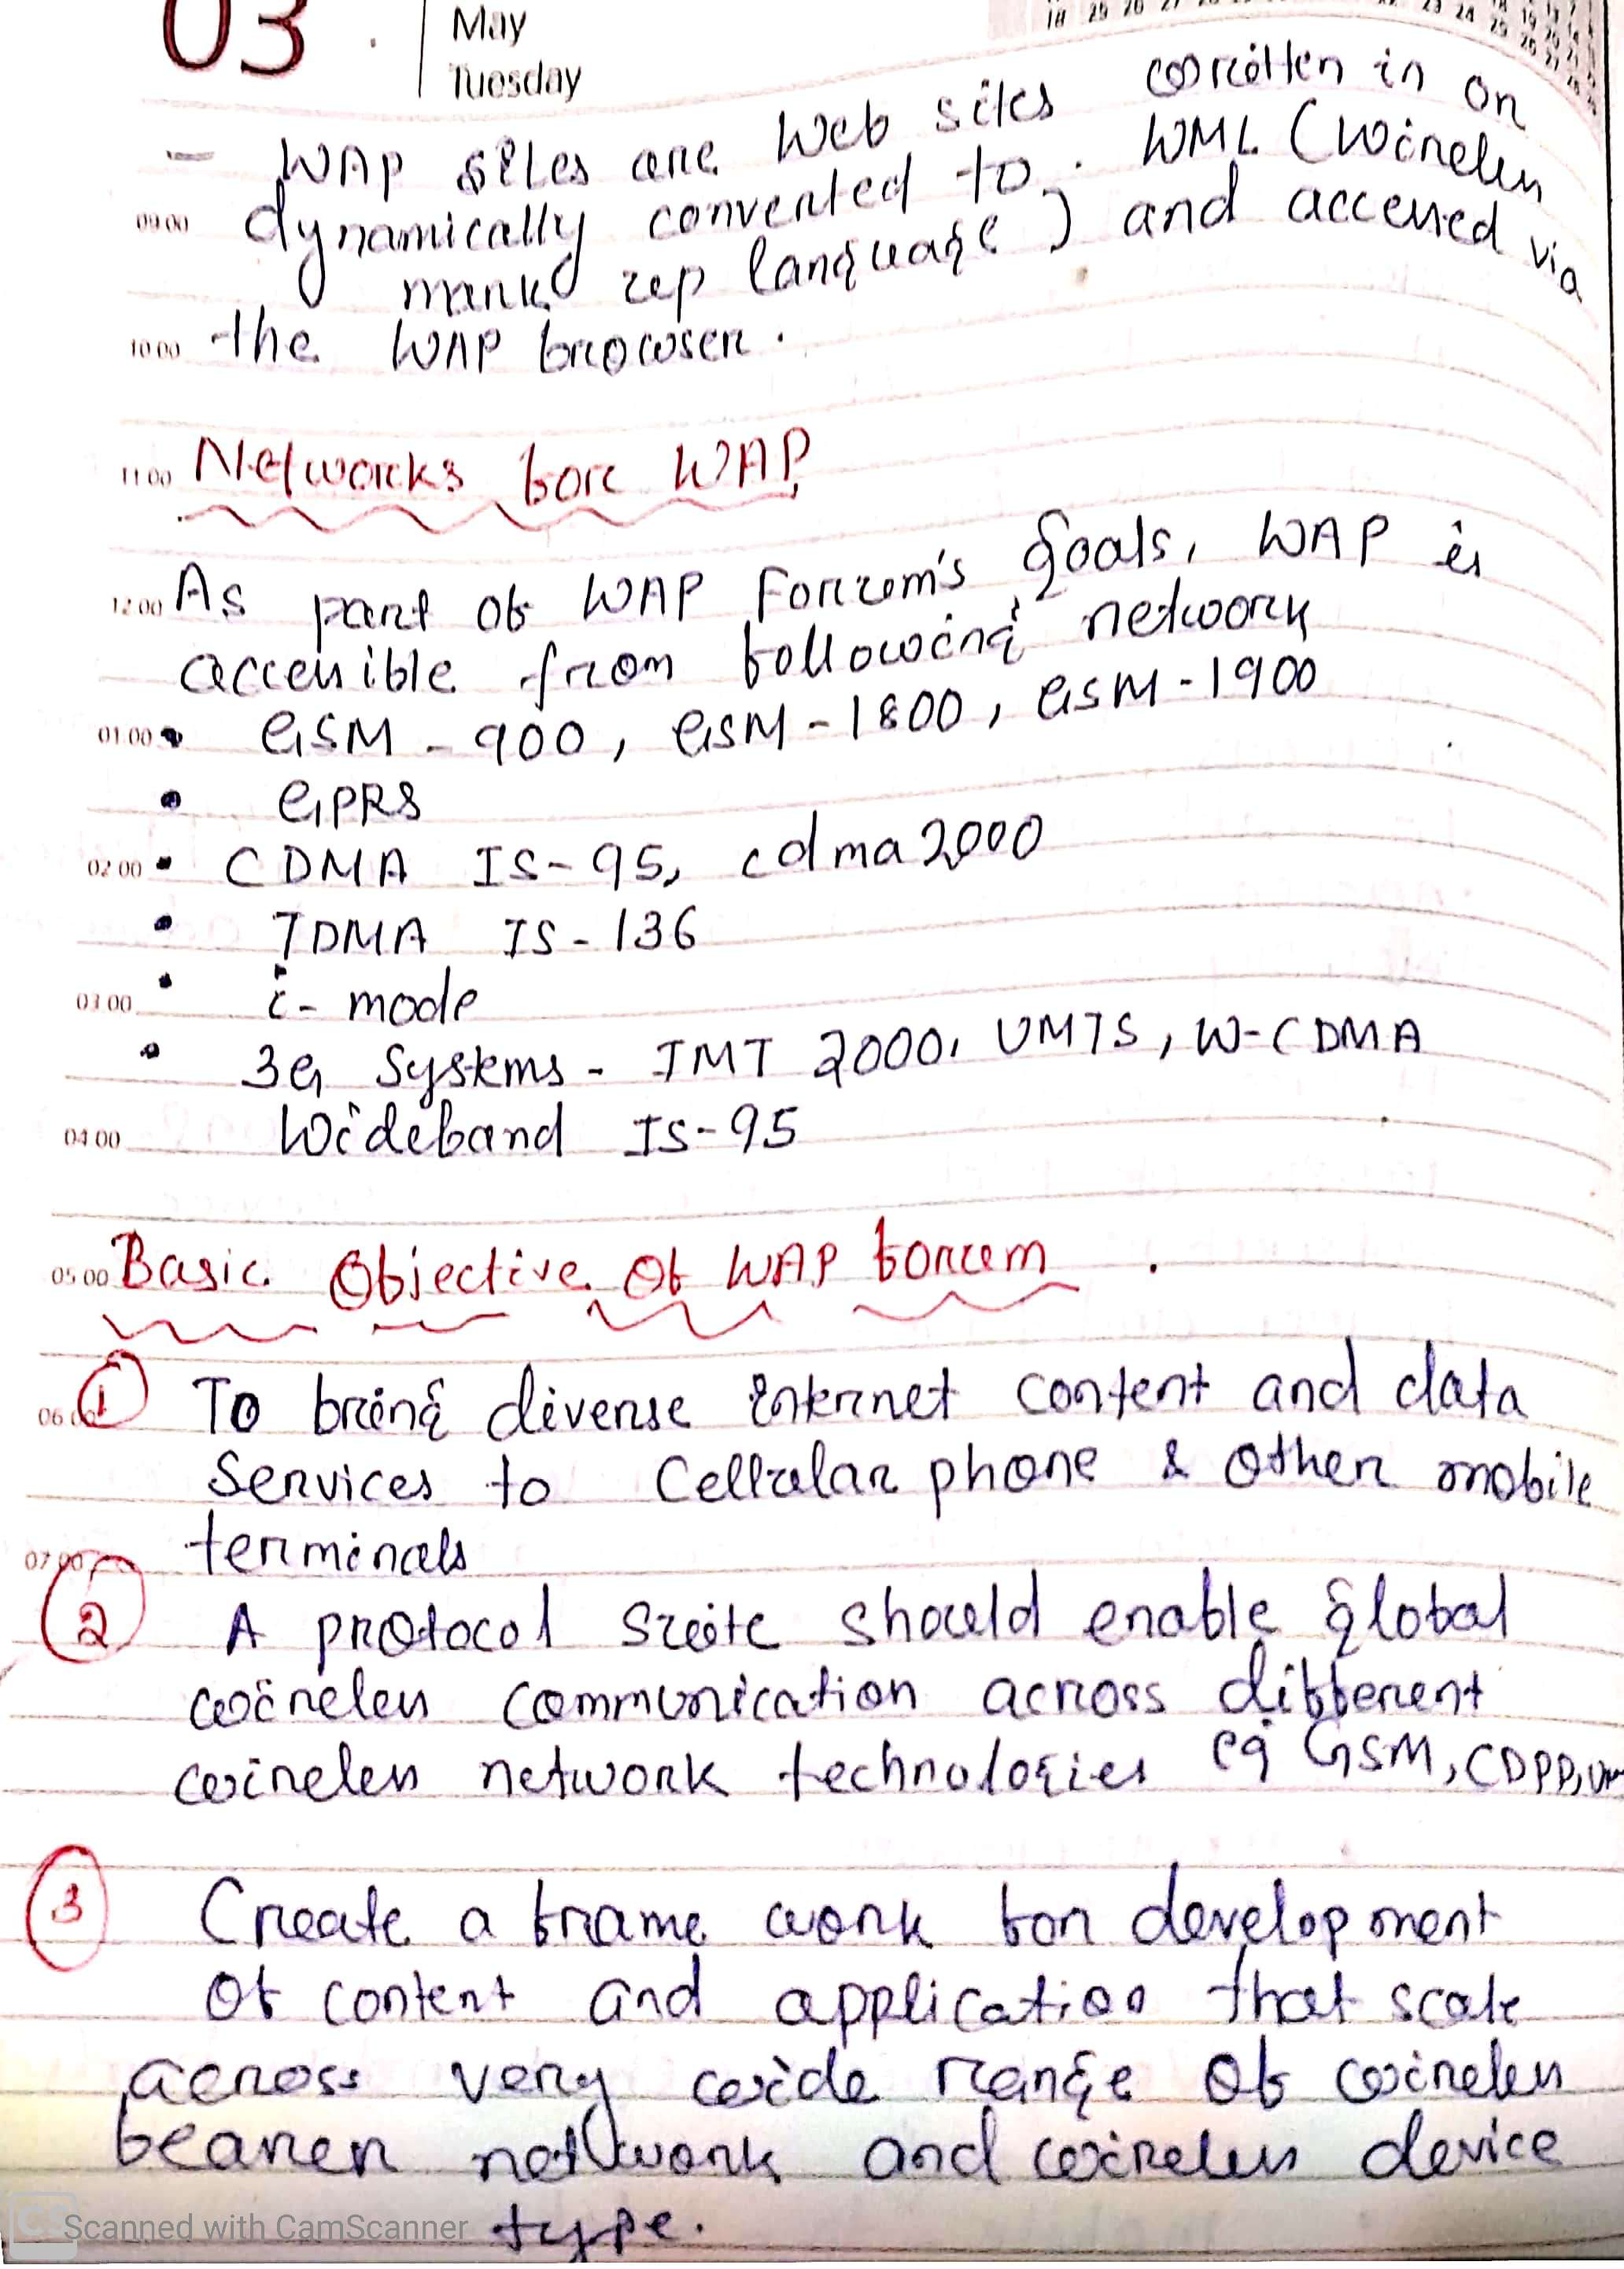 03
May
Tuesday
- WAP sites are Web sites written in on
09 00 dynamically converted to. WML (Wireless
mark up language) and accessed via
10 00 the WAP browser.
11 00 Networks for WAP
12 00 As part of WAP Forum's goals, WAP is
accessible from following network
01 00 • GSM - 900, GSM - 1800, GSM - 1900
• GPRS
02 00 • CDMA IS-95, cdma 2000
• TDMA IS-136
03 00 • i-mode
• 3G Systems - IMT 2000, UMTS, W-CDMA
04 00 Wideband IS-95
05 00 Basic Objective Of WAP forum
06 00 1 To bring diverse internet content and data
Services to Cellular phone & Other mobile
07 00 terminals
2 A protocol suite should enable global
wireless communication across different
wireless network technologies eg GSM, CDPD,
3 Create a frame work for development
of content and application that scale
across very wide range of wireless
bearer network and wireless device
type.
CS Scanned with CamScanner